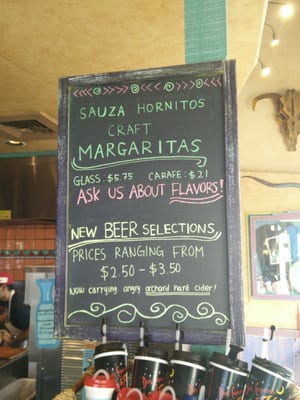 SAUZA HORNITOS
CRAFT
MARGARITAS
GLASS: $5.75 CARAFE: $21
ASK US ABOUT FLAVORS!
NEW BEER SELECTIONS
PRICES RANGING FROM
$2.50 - $3.50
NOW carrying angry orchard hard cider!